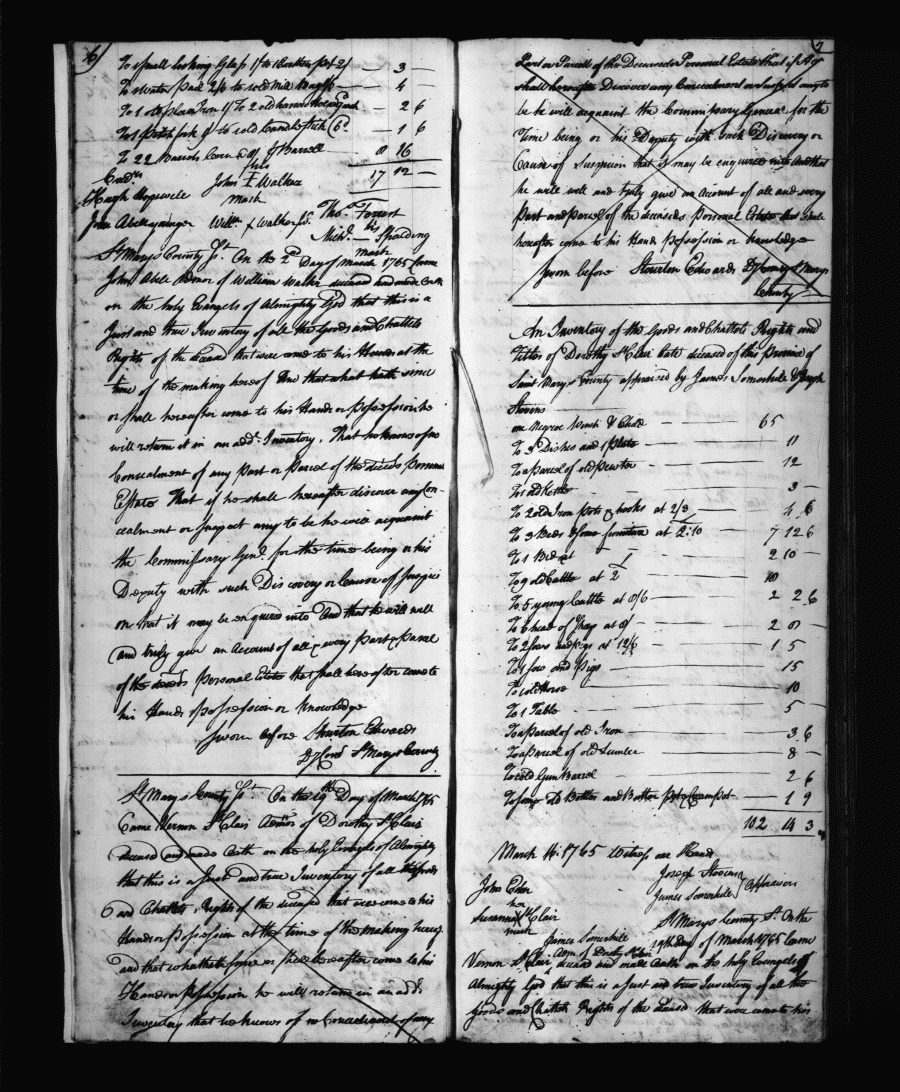 6
To 1 small looking Glass 1/ to 1 butter pot 2/ — 3 —
To 1 Water Pail 2/6 to 1 old Mill 1/6 — 4 —
To 1 old plain Iron 1/ To 2 old harrow hoes — 2 6
To 1 Pitch fork 1/ to 1 old Candlestick 6d — 1 6
To 22 Barrels Corn @ 8/ Barrell 8 16
17 12 —
Credrs
Hugh Hopewell John I Walker
his mark
John Abell younger Willm Walker Thos Forrest
Michl his mark Spalding
St Marys County Sst On the 2d Day of March 1765 Came
John Abell Admor of William Walker deceased and made Oath
on the holy Evangels of Almighty God that this is a
Just and true Inventory of all the Goods and Chattels
Rights of the Deced that were come to his Hands at the
time of the making hereof And that what hath since
or shall hereafter come to his Hands or Possession he
will return it in an addl Inventory. That he knows of no
Concealment of any Part or Parcel of the deceds Personal
Estate That if he shall hereafter discover any Con-
cealment or suspect any to be he will acquaint
the Commissary Genl for the time being or his
Deputy with such Discovery or Cause of Suspici
on that it may be enquired into And that he will well
and truly give an Account of all & every Part & Parcel
of the deceds Personal Estate that shall hereafter come to
his Hands possession or Knowledge
Sworn before Stourton Edwards
Dy Comy St Marys County
St Marys County Sst On the 19th Day of March 1765
Came Vernon St Clair Admor of Dorothy St Clair
deceased and made Oath on the holy Evangels of Almighty
that this is a Just and true Inventory of all the Goods
and Chattels, Rights of the deceased that were come to his
Hands or Possession at the time of the making hereof
and that what hath since or shall hereafter come to his
Hands or Possession he will return in an addl
Inventory that he knows of no Concealment of any
7
Part or Parcell of the Deceaseds Personal Estate that if he
shall hereafter Discover any Concealment or suspect any to
be he will acquaint the Commissary General for the
Time being or his Deputy with such Discovery or
Cause of Suspicion that it may be enquired into And that
he will well and truly give an Account of all and every
Part and Parcel of the deceaseds Personal Estate that shall
hereafter come to his Hands Possession or knowledge
Sworn before Stourton Edwards Dy Comy St Marys
County
An Inventory of the Goods and Chattels Rights and
Titles of Dorothy St Clair late deceased of this Province of
Saint Marys County appraised by James Somerhill & Joseph
Stevens
one Negroe Wench & Child — 65
To 3 Dishes and 1 plate — 11
To a parcel of old pewter — 12
To 1 old Kettle — 3 —
To 2 old Iron Pots & hooks at 2/3 — 4 6
To 3 Beds & some furniture at 2:10 — 7 12 6
To 1 Bed at — 2 10 —
To 9 old Cattle at — 10
To 5 young Cattle at 8/6 — 2 2 6
To 6 head of at 8/ — 2 8 —
To 2 sows and Pigs at 12/6 — 1 5
To 1 sow and Pigs — 15
To 1 old Horse — 10
To 1 Table — 5 —
To a Parcel of old Iron — 3 6
To a Parcel of old Lumber — 8 —
To 1 old Gun Barrel — 2 6
To some old Bottles and Butter pot & — 1 9
102 14 3
March 16. 1765 Witness our Hands
Joseph Stevens
James Somerhill } Appraisers
John Eden
her
Susanna St Clair
mark
James Somerhill
St Marys County St. On the
19th day of March 1765 Came
Vernon St Clair, Adm. of Dority St Clair
deceased and made Oath on the holy Evangels of
Almighty God that this is a Just and true Inventory of all the
Goods and Chattels Rights of the Deceased that were come to his